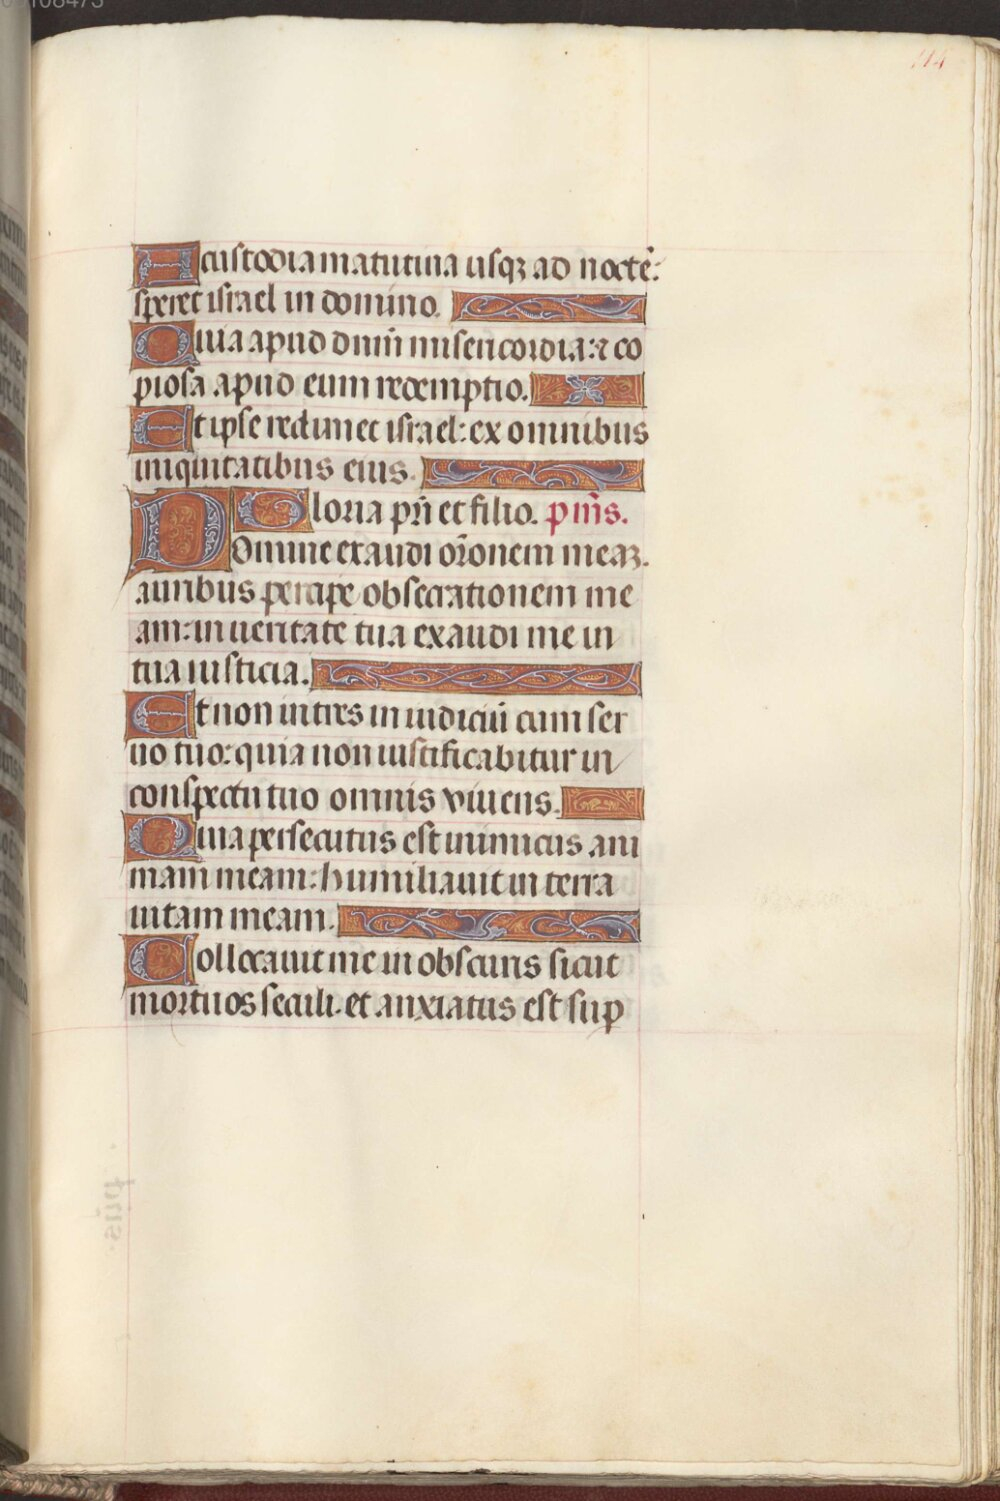 114
A custodia matutina usqꝫ ad noctē:
speret israel in domino.
Quia apud dnm̄ misericordia: ⁊ co
piosa apud eum redemptio.
Et ipse redimet israel: ex omnibus
iniquitatibus eius.
Gloria pr̄i et filio. p̄m̄s.
Domine exaudi or̄onem meaꝫ.
auribus percipe obsecrationem me
am: in ueritate tua exaudi me in
tua iusticia.
Et non intres in iudiciū cum ser
uo tuo: quia non iustificabitur in
conspectu tuo omnis viuens.
Quia persecutus est inimicus ani
mam meam: humiliauit in terra
uitam meam.
Collocauit me in obscuris sicut
mortuos seculi. et anxiatus est suꝑ